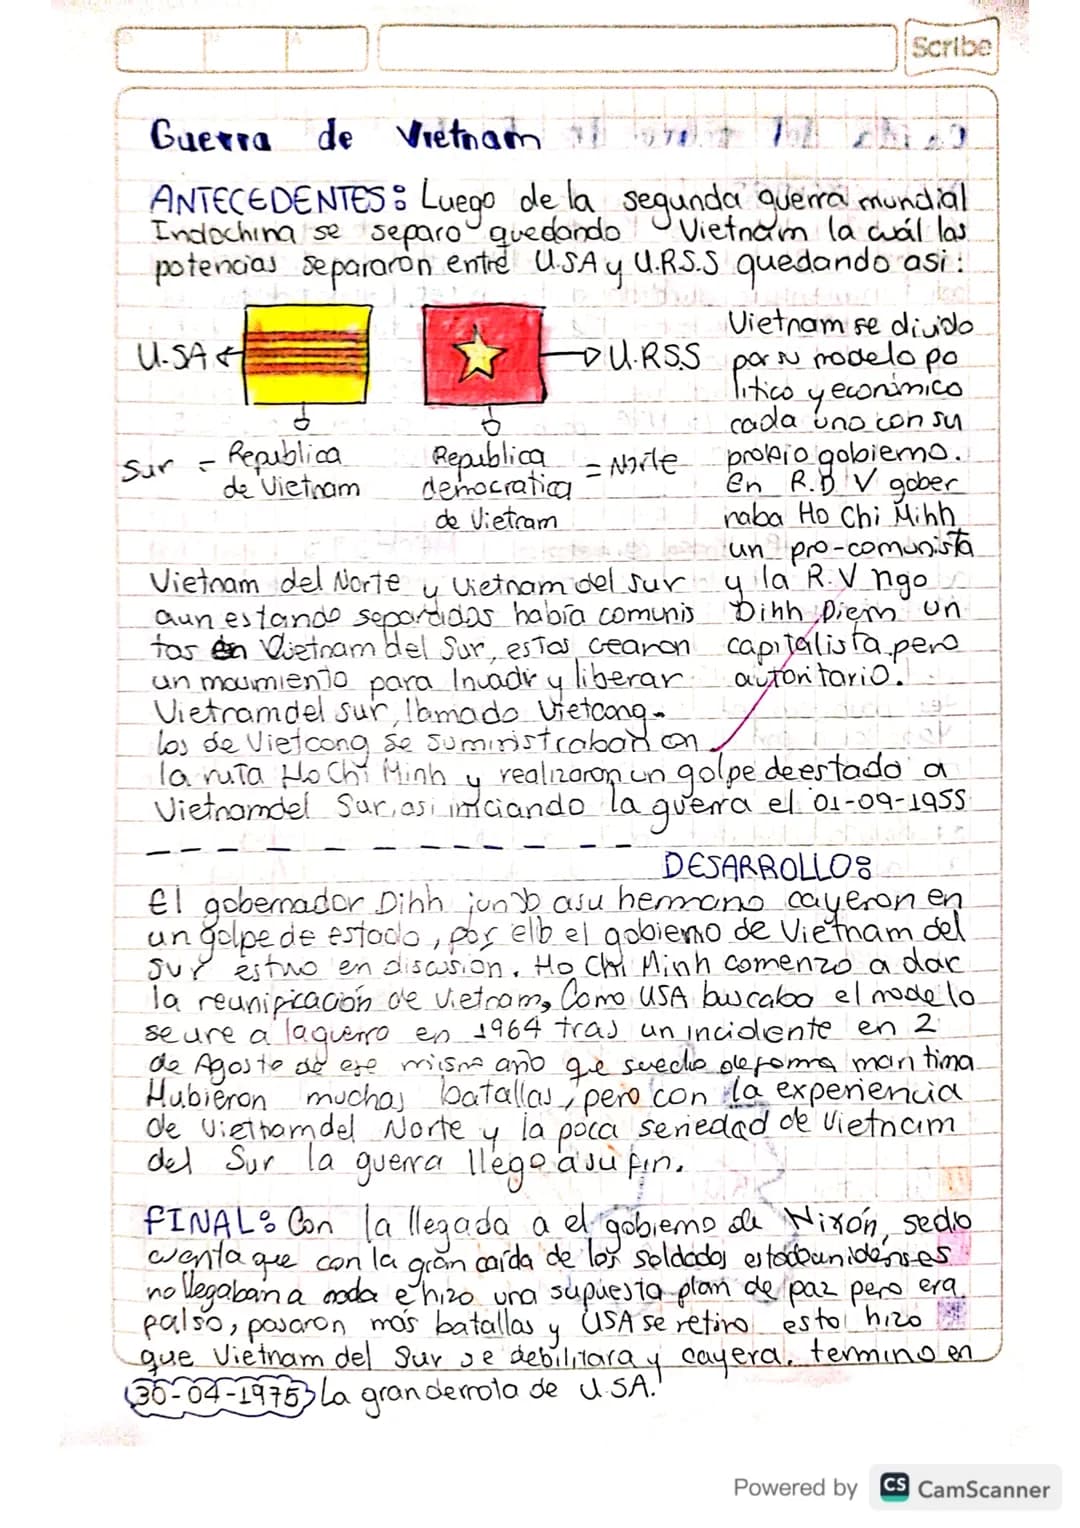 Scribe
Guerra de Vietnam
ANTECEDENTES: Luego de la segunda guerra mundial
Indochina se separo quedando Vietnam la cuál las
potencias separaron entre U.S.A y U.R.S.S quedando asi:
U.SA
U.R.S.S
Sur = Republica
de Vietnam
Republica = Norte
democratica
de Vietnam
Vietnam se divido
por su modelo po
litico y económico
cada uno con su
propio gobierno.
En R.D V gober
naba Ho Chi Mihh
un pro-comunista
y la R.V ngo
Dihh Diem un
capitalista pero
autoritario.
Vietnam del Norte y Vietnam del sur
aun estando separados había comunis
tas en Vietnam del Sur, estos crearon
un movimiento para Invadir y liberar
Vietnam del sur, llamado Vietcong.
los de Vietcong se suministraban con
la ruta Ho Chi Minh y realizaron un golpe de estado a
Vietnam del Sur, asi iniciando la guerra el 01-09-1955
DESARROLLO:
El gobernador Dihh junto a su hermano cayeron en
un golpe de estado, por ello el gobierno de Vietnam del
sur estuvo en discusion. Ho Chi Minh comenzo a dar
la reunificación de Vietnam, Como USA buscaba el modelo
se une a la guerra en 1964 tras un incidente en 2
de Agosto de ese mismo año que suedio de forma maritima
Hubieron muchas batallas, pero con la experiencia
de Vietnam del Norte y la poca seriedad de Vietnam
del Sur la guerra llego a su fin.
FINAL: Con la llegada a el gobierno de Nixón, se dio
cuenta que con la gran caída de los soldados estadounidenses
no llegaban a nada e hizo una supuesta plan de paz pero era
falso, pasaron mas batallas y USA se retiro esto hizo
que Vietnam del Sur se debilitara y cayera. termino en
30-04-1975 La gran derrota de U.S.A.
Powered by CS CamScanner